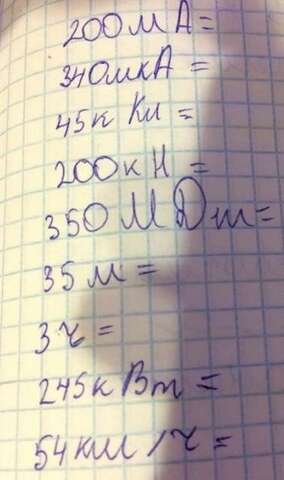 200мА=
340мкА=
45кКл=
200кН=
350МДж=
35м=
3ч=
245кВт=
54км/ч=